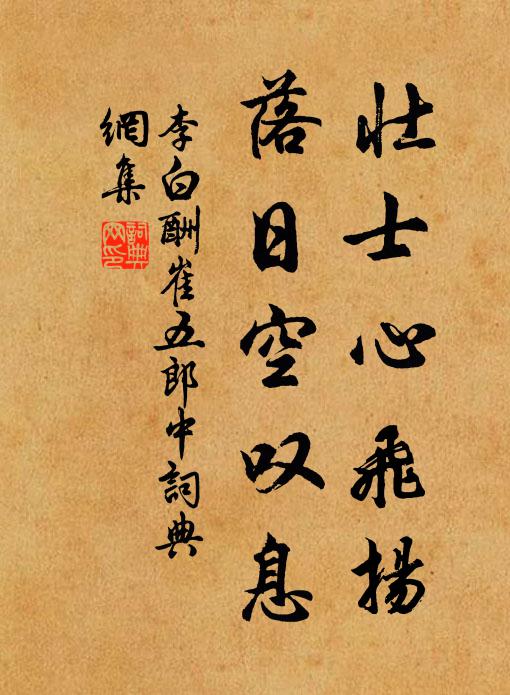 壯士心飛揚
落日空叹息
李白酬崔五郎中詞典
網集
詞典網印